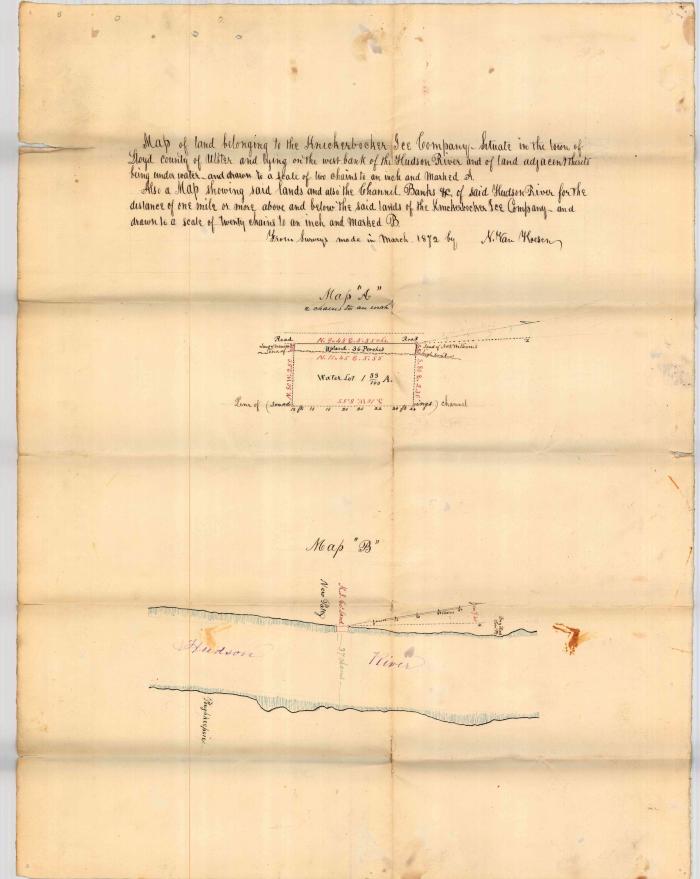 Map of land belonging to the Knickerbocker Ice Company_ Situate in the town of
Lloyd county of Ulster and lying on the west bank of the Hudson River and of land adjacent thereto
being under water_ and drawn to a scale of two chains to an inch and Marked A.
Also a Map showing said lands and also the Channel, Banks &c. of said Hudson River for the
distance of one mile or more above and below the said lands of the Knickerbocker Ice Company_ and
drawn to a scale of twenty chains to an inch and Marked B
From Surveys made in March 1872 by N. Van Hoesen
Map "A"
2 chains to an inch
Road
Road
Upland. 36 Perches
N. 11. 45 E. 5. 55
Water Lot 1 53/100 A.
Line of (Sound
ings) channel
Map "B"
New Paltz
K. I. Co's Land
37 chains
Hudson
River
Poughkeepsie